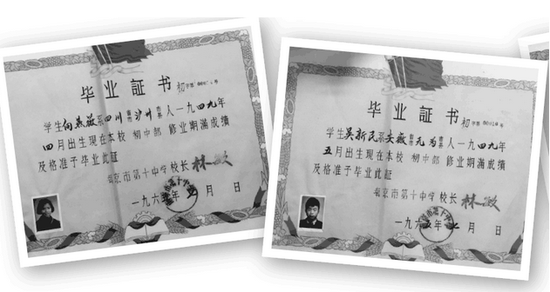 毕业証书
初
学生向燕薇系四川省泸州市人一九四九年
四月出生现在本校初中部修业期满成绩
及格准予毕业此証
南京市第十中学校长林敏
一九六五年七月 日
毕业証书
初
学生吴新民系安徽省无为县人一九四九年
五月出生现在本校初中部修业期满成绩
及格准予毕业此証
南京市第十中学校长林敏
一九六五年七月 日